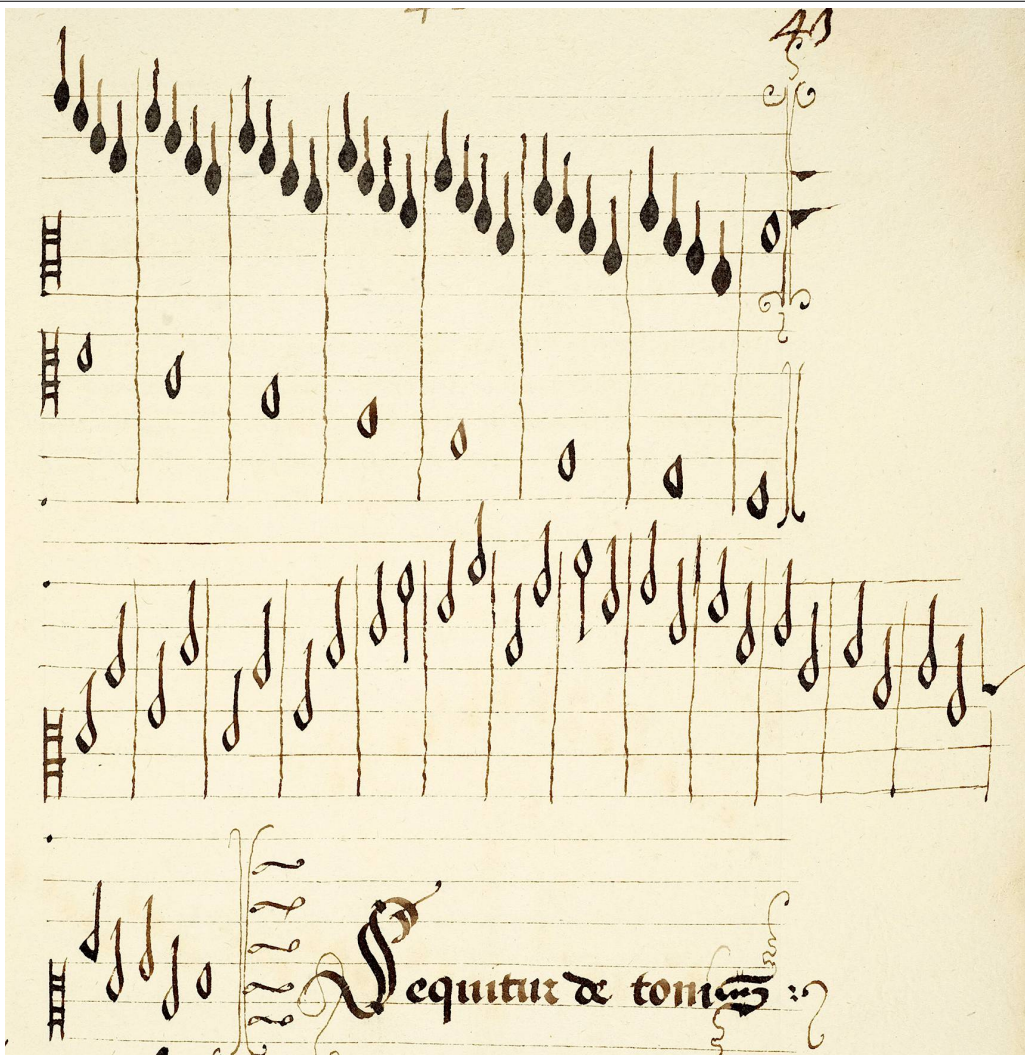 43
Sequitur de tonis